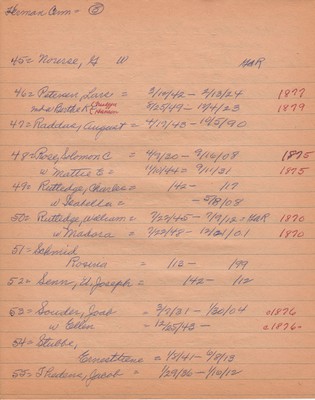 Herman Cem = ⑤
45 = Nourse, G W GAR
46 = Petersen, Lars = 3/10/42 - 2/13/24 1877
8/25/49 - 12/4/23 1879
47 = Raddas, August = 4/17/43 - 10/5/90
48 = Rose, Solomon C = 4/9/20 - 9/16/08 1875
w Mattie E = 9/11/21 1875
49 = Rutledge, Charles = 142 - /17
w Isabella = - 5/8/08
50 = Rutledge, William = 7/22/45 - 7/19/12 = GAR 1870
w Madora = 7/22/48 - 12/21/01 1870
51 = Schmid
Rosina = /13 - /99
52 = Senn, U. Joseph = 142 - /12
53 = Souder, Joab = 3/9/31 - 1/30/04 c1876
w Ellen = 12/25/43 - c1876-
54 = Stubbe,
Ernestiene = 1/5/41 - 6/9/13
55 = Thedens, Jacob = 1/29/36 - 1/10/12